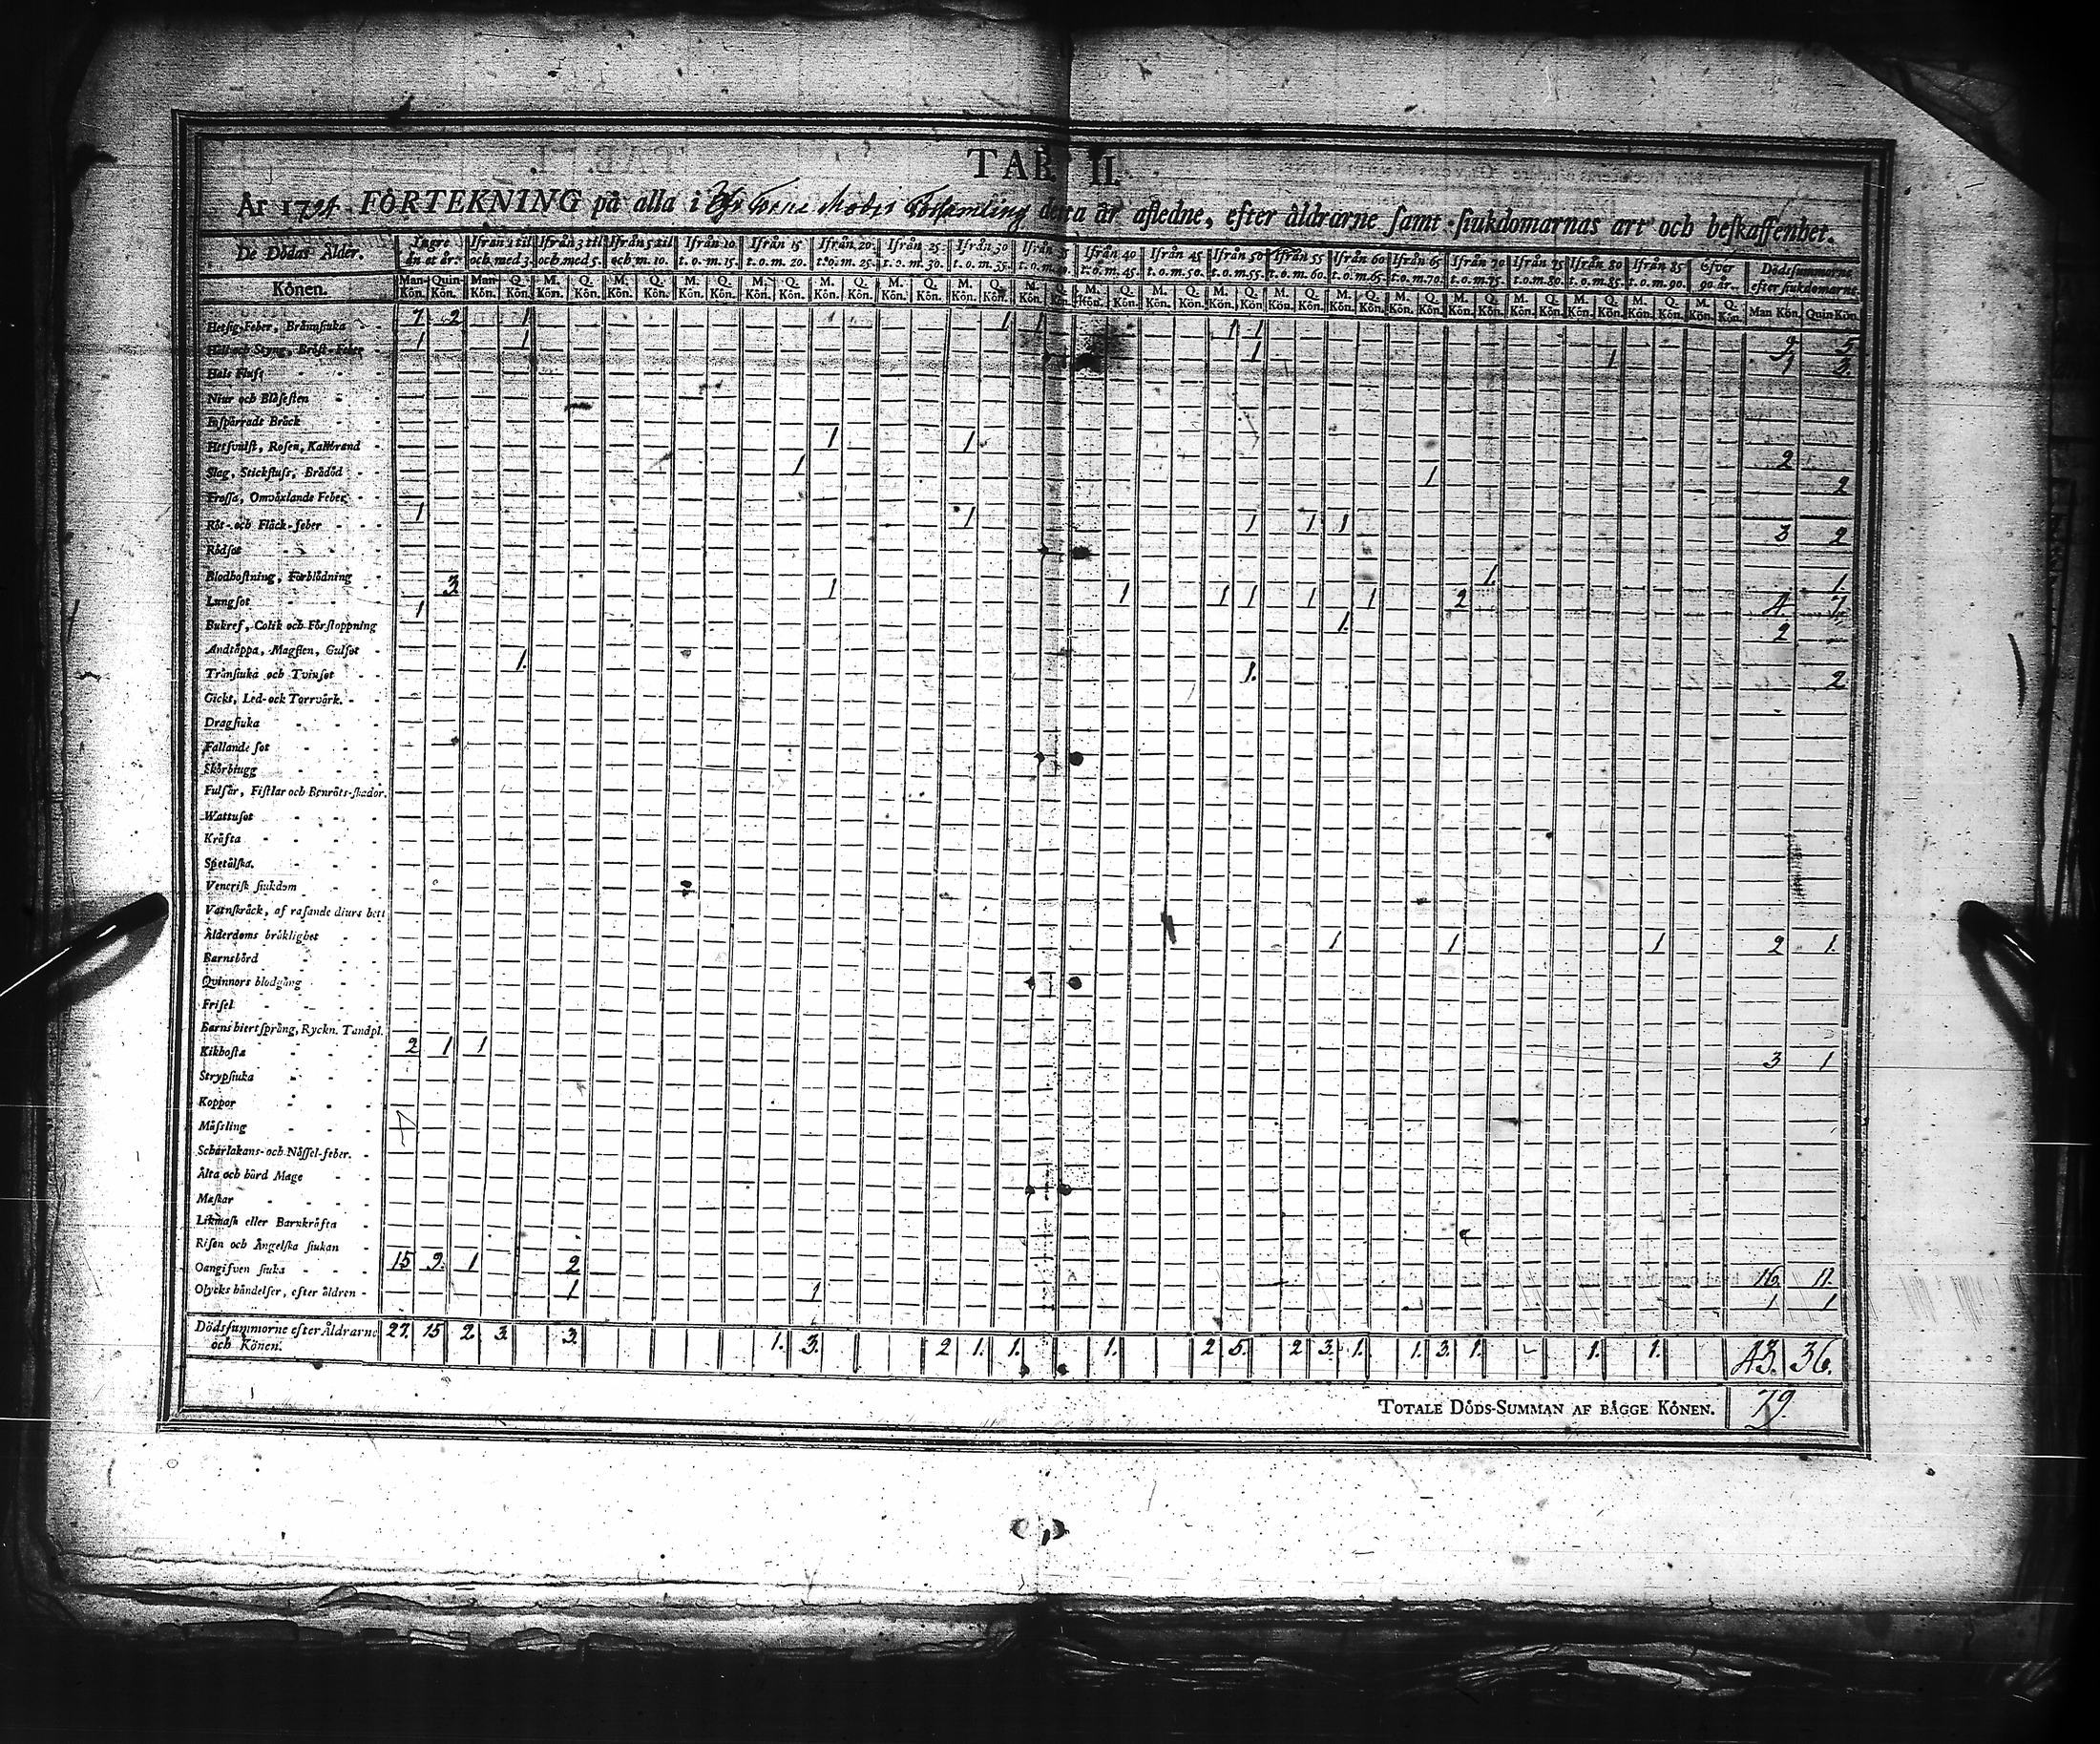 TAB. II.
År 1794. FÖRTEKNING på alla i Öfver Torne Moder Församling detta år afledne, efter åldrarne samt siukdomarnas art och beskaffenhet.
De Dödas Ålder. Yngre än et år. Ifrån 1 til och med 3. Ifrån 3 til och med 5. Ifrån 5 til och m. 10. Ifrån 10 t. o. m. 15. Ifrån 15 t. o. m. 20. Ifrån 20 t. o. m. 25. Ifrån 25 t. o. m. 30. Ifrån 30 t. o. m. 35. Ifrån 35 t. o. m. 40. Ifrån 40 t. o. m. 45. Ifrån 45 t. o. m. 50. Ifrån 50 t. o. m. 55. Ifrån 55 t. o. m. 60. Ifrån 60 t. o. m. 65. Ifrån 65 t. o. m. 70. Ifrån 70 t. o. m. 75. Ifrån 75 t. o. m. 80. Ifrån 80 t. o. m. 85. Ifrån 85 t. o. m. 90. Öfver 90 år. Dödssummorne efter siukdomarne.
Könen. Man-Kön. Quin-Kön. Man-Kön. Q. Kön. M. Kön. Q. Kön. M. Kön. Q. Kön. M. Kön. Q. Kön. M. Kön. Q. Kön. M. Kön. Q. Kön. M. Kön. Q. Kön. M. Kön. Q. Kön. M. Kön. Q. Kön. M. Kön. Q. Kön. M. Kön. Q. Kön. M. Kön. Q. Kön. M. Kön. Q. Kön. M. Kön. Q. Kön. M. Kön. Q. Kön. M. Kön. Q. Kön. M. Kön. Q. Kön. M. Kön. Q. Kön. M. Kön. Q. Kön. M. Kön. Q. Kön. Man Kön. Quin Kön.
Hetsig Feber, Brännsiuka 7 2 1 1 1 1 1 9 5
Håll och Styng, Bröst-Feber 1 1 1 1 1 3.
Hals Fluss
Niur och Blåsesten
Inspärrade Bråck
Hetsvulst, Rosen, Kallbrand 1 1 2
Slag, Stickfluss, Brådöd 1 1 2
Frossa, Omväxlande Feber
Röt- och Fläck-feber 1 1 1 1 1 3 2
Rödsot
Blodhostning, Förblödning 1. 1.
Lungsot 3 1 1 1 1 1 1 2 4 7.
Bukref, Colik och Förstoppning 1 1. 2
Andtäppa, Magsten, Gulsot
Trånsiuka och Tvinsot 1. 1. 2
Gickt, Led- och Torrvärk.
Dragsiuka
Fallande sot
Skörbiugg
Fulsår, Fistlar och Benröts-skador.
Wattusot
Kräfta
Spetälska.
Venerisk siukdom
Vatnskräck, af rasande diurs bett
Ålderdoms bräklighet 1 1 1 2 1.
Barnsbörd
Qvinnors blodgång
Frisel
Barns hiertsprång, Ryckn. Tandpl.
Kikhosta 2 1 1 3 1
Strypsiuka
Koppor
Mässling
Scharlakans- och Nässel-feber.
Älta och hård Mage
Maskar
Likmask eller Barnkräfta
Risen och Ängelska siukan
Oangifven siuka 15 9. 1 2 16. 11.
Olycks händelser, efter åldren 1 1 1 1
Dödssummorne efter Åldrarne och Könen. 27. 15 2. 3. 3. 1. 3. 2 1. 1. 1. 2 5. 2 3. 1. 1. 3. 1. 1. 1. 43. 36.
TOTALE DÖDS-SUMMAN AF BÄGGE KÖNEN. 79.